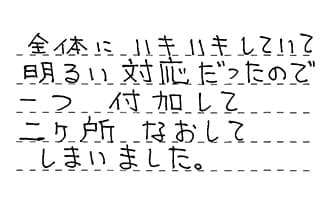 全体にハキハキしていて
明るい対応だったので
二つ 付加して
二ヶ所 なおして
しまいました。